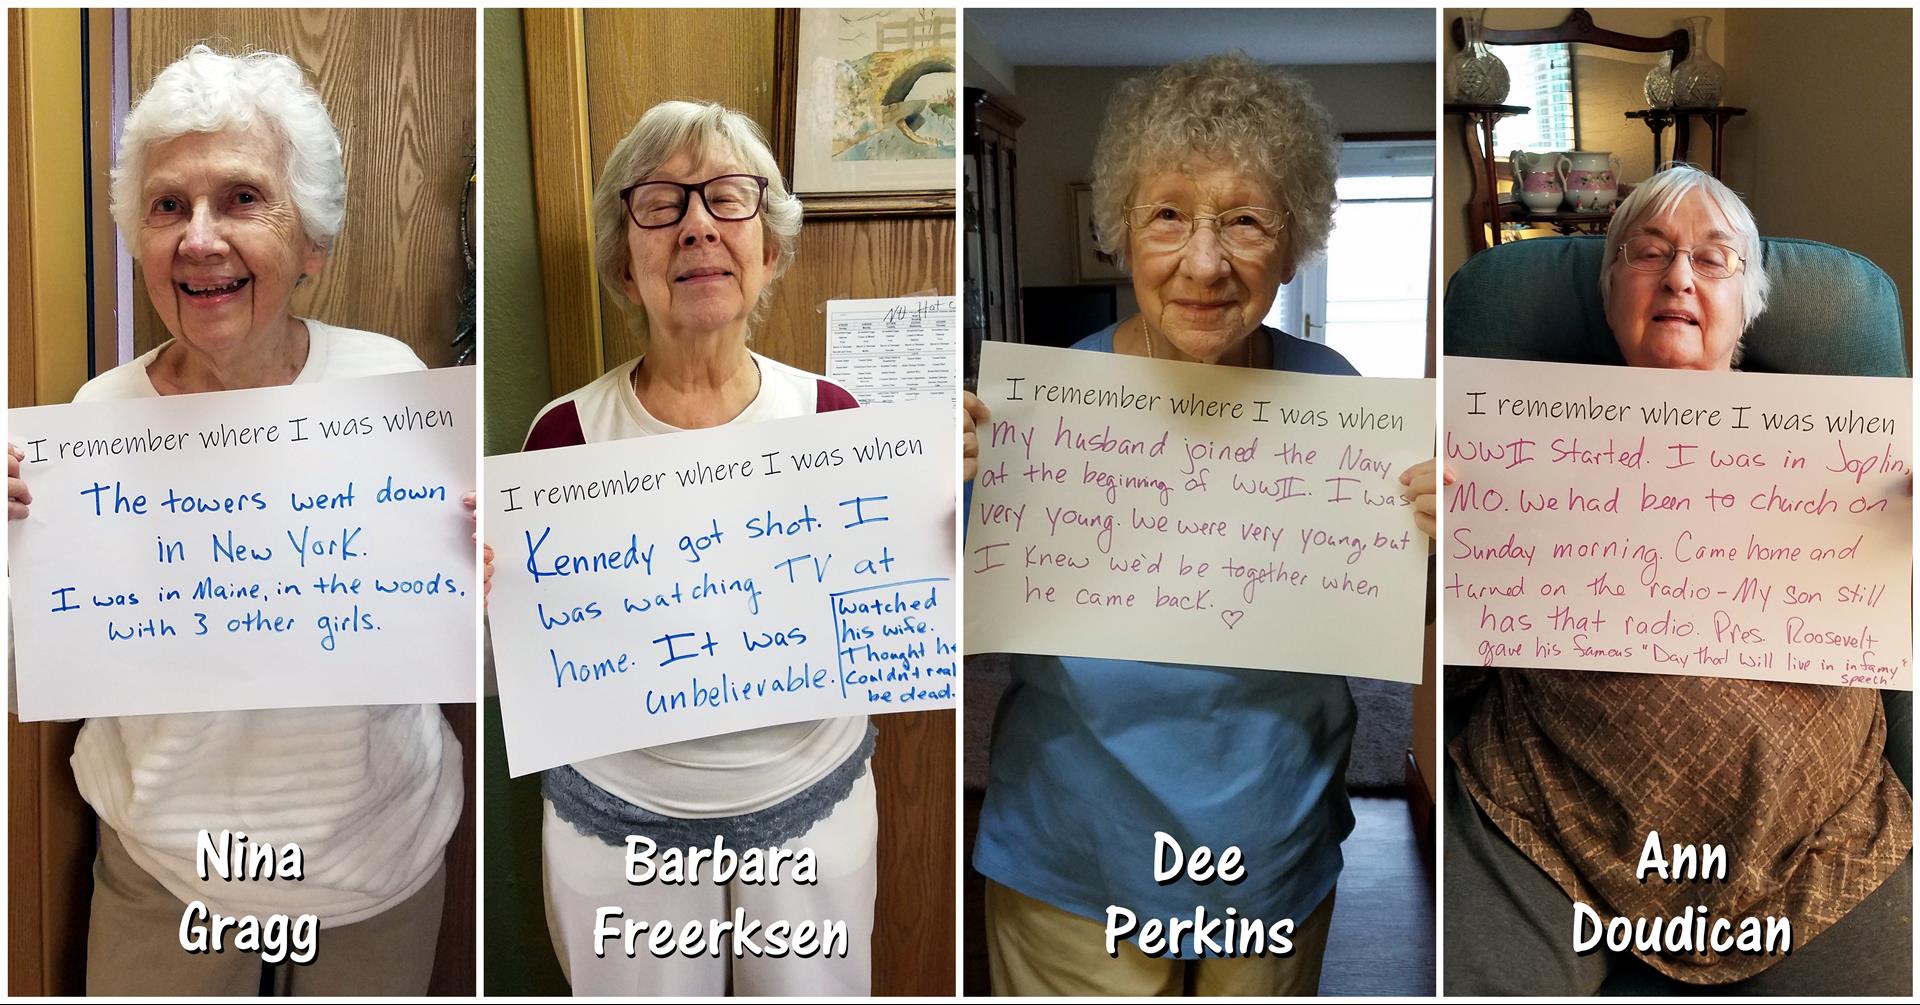 I remember where I was when
The towers went down
in New York.
I was in Maine, in the woods.
with 3 other girls.
Nina
Gragg
No Hot
I remember where I was when
Kennedy got shot. I
was watching TV at
home. It was
unbelievable.
Watched
his wife.
Thought he
couldn't real
be dead.
Barbara
Freerksen
I remember where I was when
My husband joined the Navy
at the beginning of WWII. I was
very young. We were very young, but
I knew we'd be together when
he came back. ♡
Dee
Perkins
I remember where I was when
WWII Started. I was in Joplin,
MO. We had been to church on
Sunday morning. Came home and
turned on the radio - My son still
has that radio. Pres. Roosevelt
gave his famous "Day that will live in infamy"
speech!
Ann
Doudican